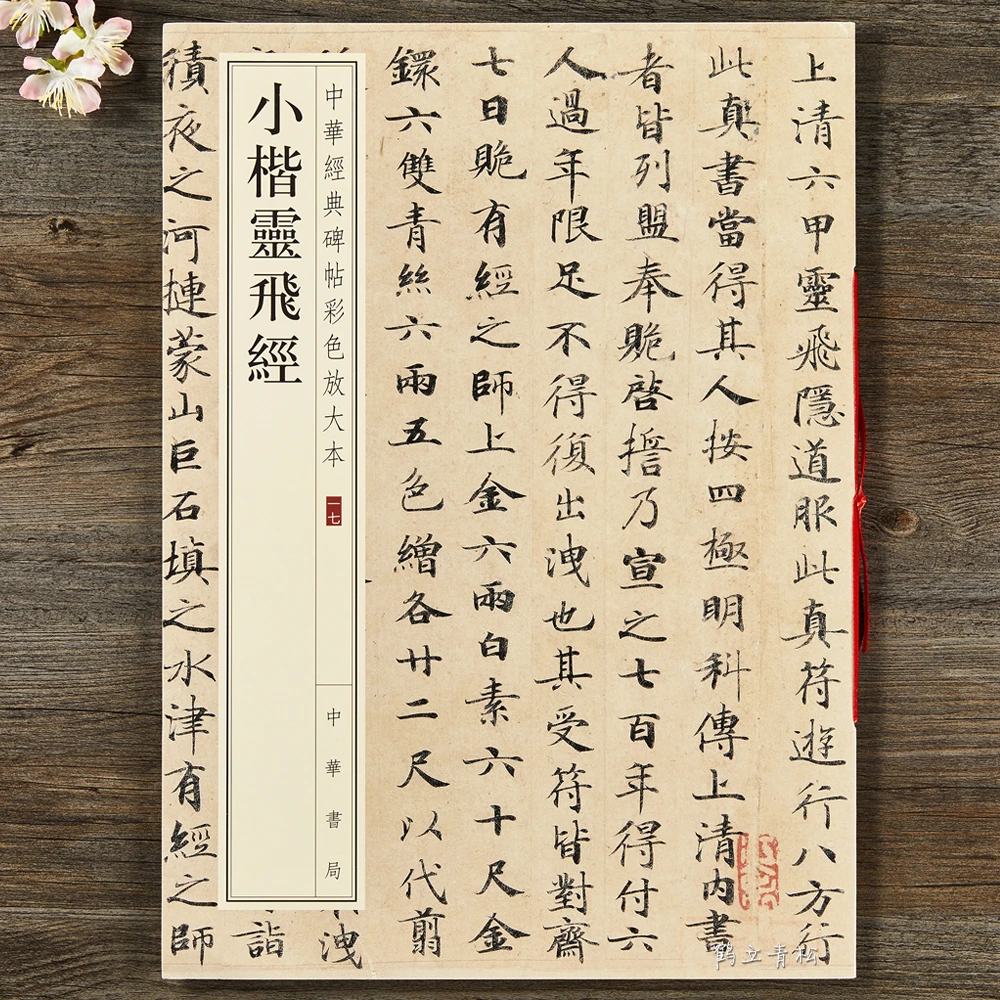 上清六甲靈飛隱道服此真符遊行八方行
此真書當得其人按四極明科傳上清內書
者皆列盟奉䞈啓擔乃宣之七百年得付六
人過年限足不得復出洩也其受符皆對齋
七日䞈有經之師上金六兩白素六十尺金
鐶六雙青絲六兩五色繒各廿二尺以代翦
洩
中華經典碑帖彩色放大本
一七
中華書局
小楷靈飛經
詣
積夜之河摙蒙山巨石填之水津有經之師
鹤立青松